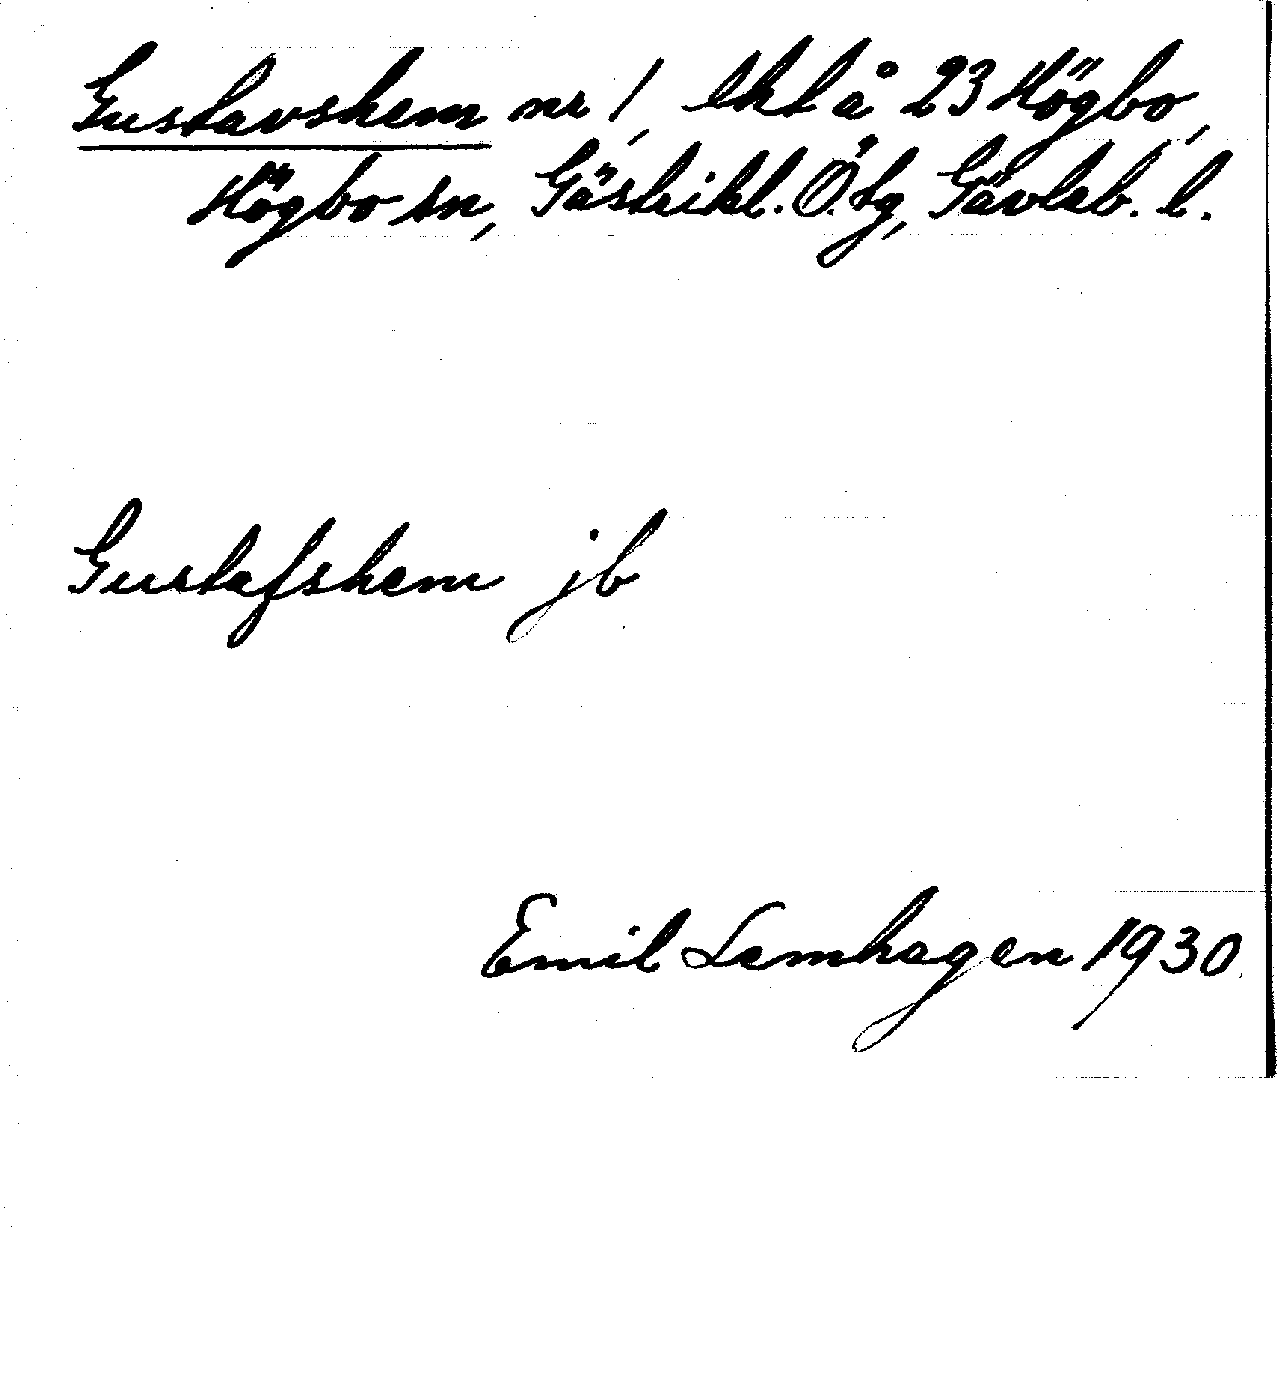 Gustavshem nr 1, lht å 23 Högbo,
Högbo sn, Gästrikl. Ö. tg, Gävleb. l.
Gustafshem jb
Emil Lemhagen 1930